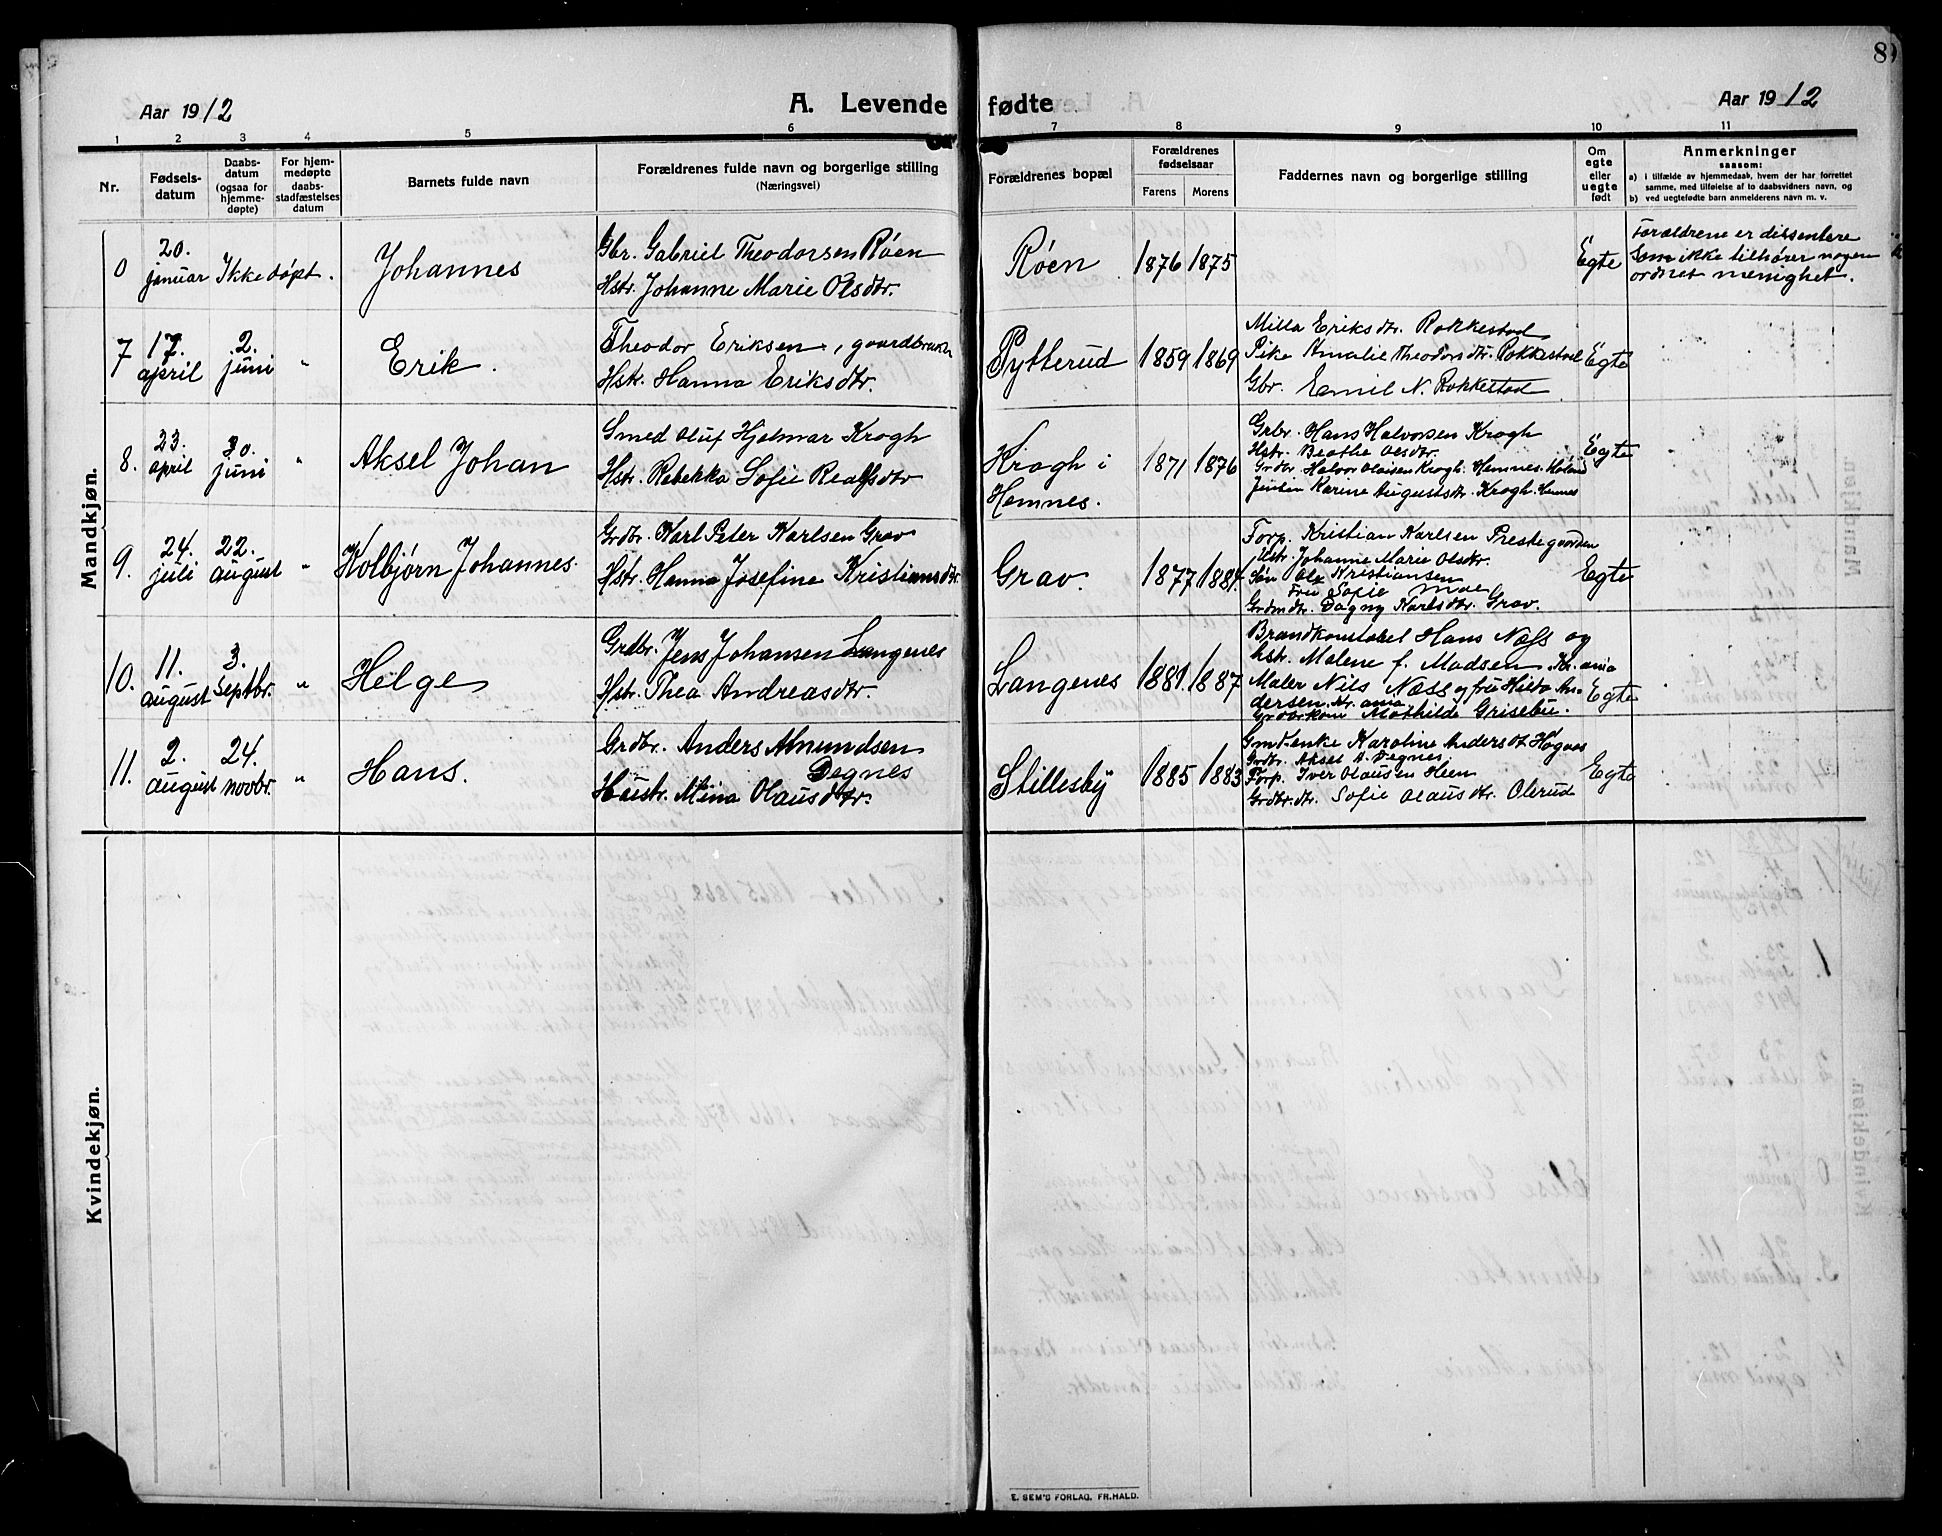 8
Aar 1912
A. Levende fødte
Aar 1912
1 2 3 4 5 6 7 8 9 10 11
Nr.
Fødsels-
datum
Daabs-
datum
(ogsaa for
hjemme-
døpte)
For hjem-
medøpte
daabs-
stadfæstelses
datum
Barnets fulde navn
Forældrenes fulde navn og borgerlige stilling
(Næringsvei)
Forældrenes bopæl
Forældrenes
fødselsaar
Farens Morens
Faddernes navn og borgerlige stilling
Om
egte
eller
uegte
født
Anmerkninger
saasom:
a) i tilfælde av hjemmedaab, hvem der har forrettet
samme, med tilføielse af to daabsvidners navn, og
b) ved uegtefødte barn anmelderens navn m. v.
Mandkjøn.
0
20.
januar
Ikke døpt.
Johannes
Gbr. Gabriel Theodorsen Røen
Hstr. Johanne Marie Olsdtr.
Røen
1876 1875
Egte
Forældrene er dissentere
som ikke tilhører nogen
ordnet menighet.
7
17.
april
2.
juni
"
Erik.
Theodor Eriksen, gaardbruker
Hstr. Hanna Eriksdtr.
Pytterud
1859 1869
Milla Eriksdtr. Rokkestad
Pike Amalie Theodorsdtr. Rokkestad
Gbr. Emil N. Rokkestad
Egte
8.
23.
april
30.
juni
"
Aksel Johan
Smed Oluf Hjalmar Krogh
Hstr. Rebekka Sofie
Krogh i
Hemnes.
1871 1876
Grbr. Hans Halvorsen Krogh
Hstr. Beathe Olsdtr.
Grdbr. Halvor Olaisen Krogh. Hemnes.
Karine Augustdtr. Krogh. Hemnes
Egte
9.
24.
juli
22.
august
"
Kolbjørn Johannes.
Grdbr. Karl Peter Karlsen Grav
Hstr. Hanna Josefine Kristiansdtr.
Grav.
1877 1884.
Forp. Kristian Karlsen Prestegaarden
Hstr. Johanne Marie Olsdtr.
Søn Ole Kristiansen
Fru Sofie Moe
Grdmdtr. Dagny Karlsdtr. Grav.
Egte
10.
11.
august
3.
Septbr.
"
Helge
Grdbr. Jens Johansen Langenes
Hstr. Thea Andreasdtr.
Langenes
1881. 1887
Brandkonstabel Hans Næss og
hstr. Malene f. Madsen, Kr.ania
Maler Nils Næss og fru Hilda An-
dersen. Kr.ania
Grdbrkone Mathilde Grisebu.
Egte
11.
2.
august
24.
novbr.
"
Hans.
Grdbr. Anders Amundsen
Degnes
Hustr. Mina Olausdtr.
Stillesby
1885 1883
Gmd.enke Karoline Andersdt.
Grdbr. Aksel A. Degnes
Forp. Iver Olausen Heen
Grdbr.dtr. Sofie Olausdtr. Olerud
Egte
Kvindekjøn.
E. SEM'S FORLAG, FR.HALD.